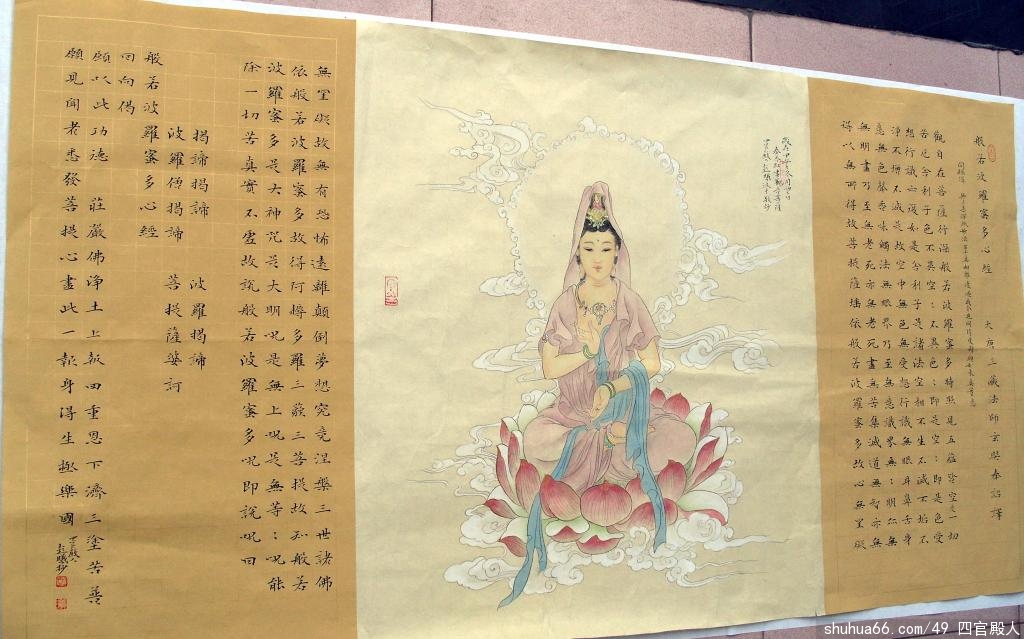 般若波羅蜜多心經 大唐三藏法師玄奘奉詔譯
開經偈 無上甚深微妙法百千萬劫難遭遇我今見聞得受持願解如來真實意
觀自在菩薩行深般若波羅蜜多時照見五蘊皆空度一切
苦厄舍利子色不異空:不異色:即是空:即是色受
想行識亦復如是舍利子是諸法空相不生不滅不垢不
淨不增不減是故空中無色無受想行識無眼耳鼻舌身
意無色聲香味觸法無眼界乃至無意識界無:明亦無
無明盡乃至無老死亦無老死盡無苦集滅道無智亦無
得以無所得故菩提薩埵依般若波羅蜜多故心無罣礙
無罣礙故無有恐怖遠離顛倒夢想究竟涅槃三世諸佛
依般若波羅蜜多故得阿耨多羅三藐三菩提故知般若
波羅蜜多是大神咒是大明咒是無上咒是無等:咒能
除一切苦真實不虛故說般若波羅蜜多咒即說咒曰
揭諦揭諦 波羅揭諦
波羅僧揭諦 菩提薩婆訶
般若波羅蜜多心經
回向偈
願以此功德 莊嚴佛淨土上報四重恩下濟三塗苦善
願見聞者悉發菩提心盡此一報身得生極樂國
shuhua66.com/49 四官殿人